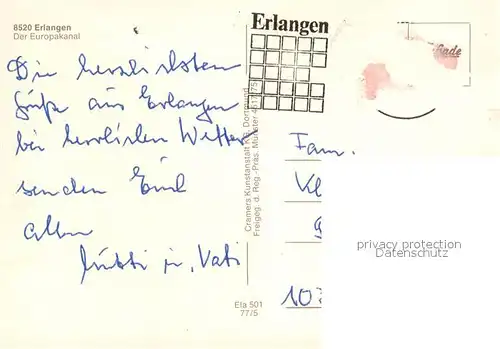 8520 Erlangen
Der Europakanal
Erlangen
Die herzlichsten
Grüße aus Erlangen
bei herrlichen Wetter
senden Euch
allen
Mutti u. Vati
Fam.
Kl
10
Cramers Kunstanstalt KG, Dortmund
Freigeg. d. Reg.-Präs. Münster
Ela 501
77/5
privacy protection
Datenschutz